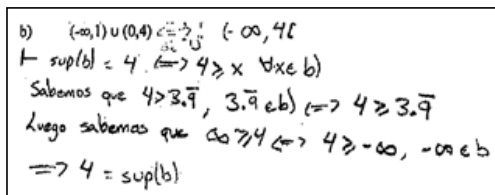 b) (-∞,1) ∪ (0,4) (-∞,4[
⊢ sup(b) = 4 <=> 4 ≥ x ∀x∈b)
Sabemos que 4>3.9̅, 3.9̅ ∈b) <=> 4 ≥ 3.9̅
Luego sabemos que ∞≥4 <=> 4 ≥ -∞, -∞ ∈ b
=> 4 = sup(b)